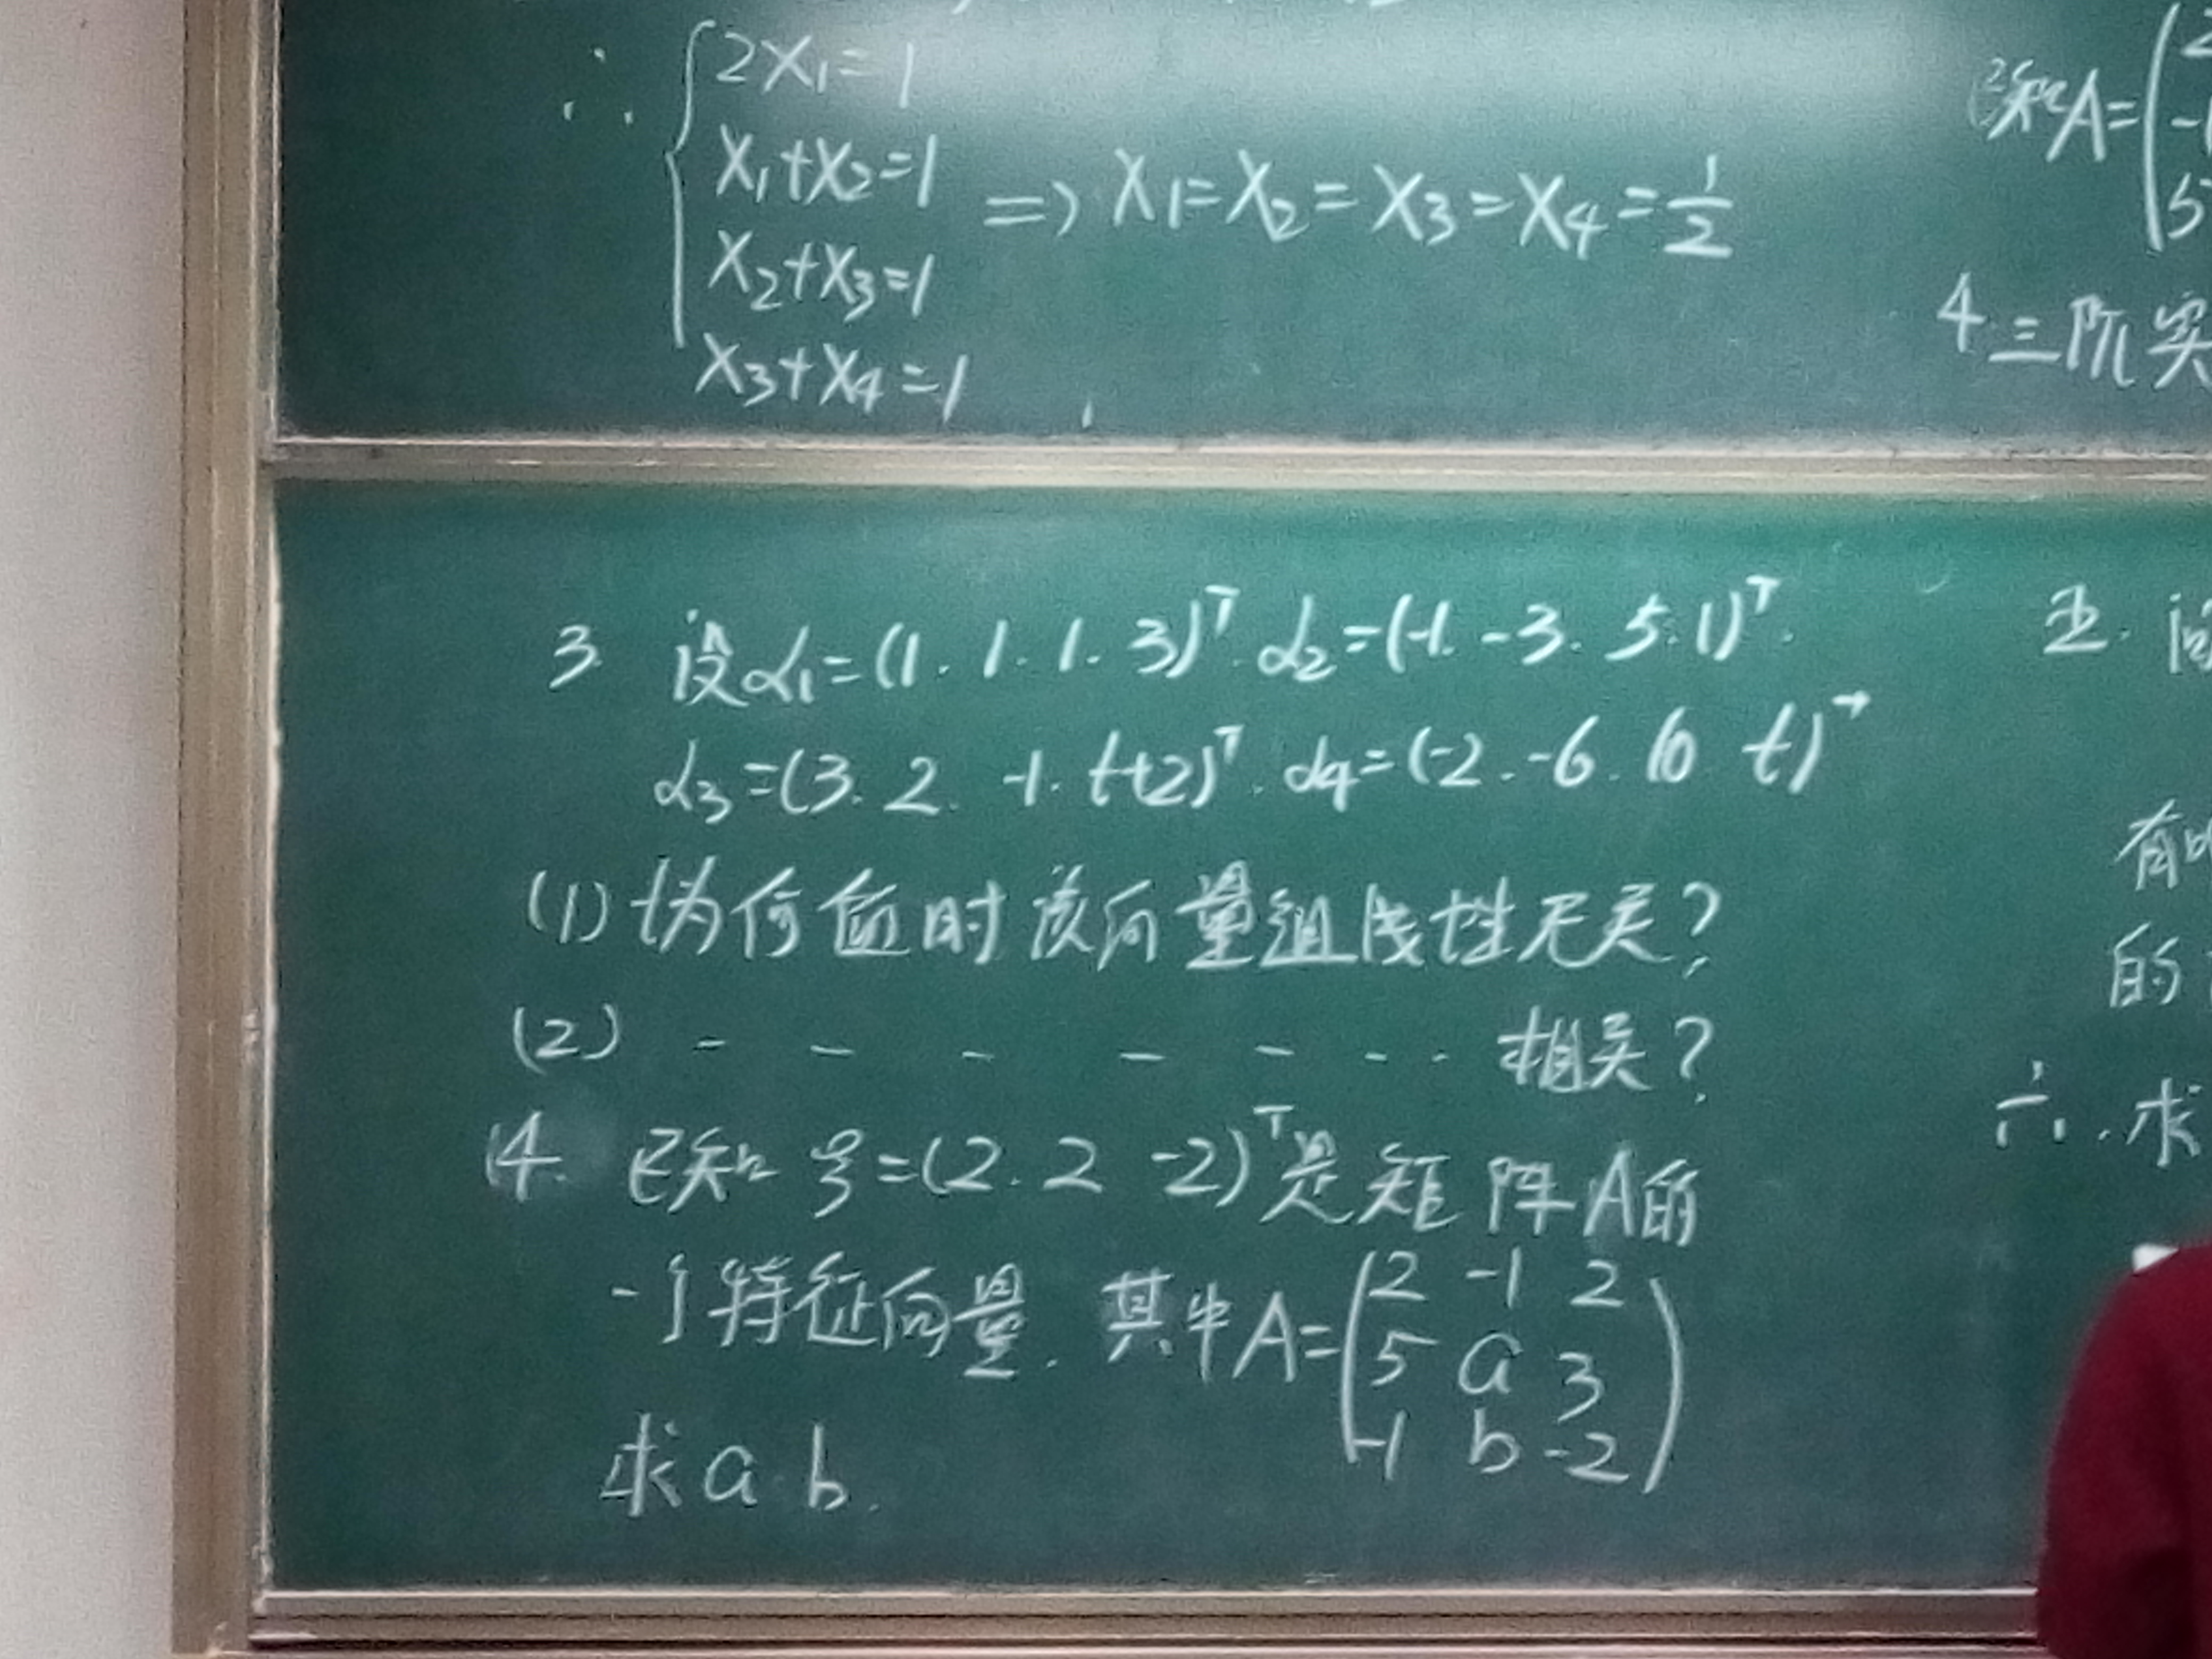 ∴ { 2X₁=1
X₁+X₂=1
X₂+X₃=1
X₃+X₄=1
=> X₁=X₂=X₃=X₄=1/2
已知A=(2
-1
5
4.三阶实
3. 设α₁=(1.1.1.3)ᵀ.α₂=(-1.-3.5.1)ᵀ.
α₃=(3.2.-1.t+2)ᵀ.α₄=(-2.-6.10 t)ᵀ
(1) t为何值时该向量组线性无关?
(2) - - - - - - - 相关?
4. 已知ξ=(2.2 -2)ᵀ是矩阵A的
一个特征向量.其中A=(2 -1 2
5 a 3
-1 b -2)
求a.b.
五.
有
的
六.求